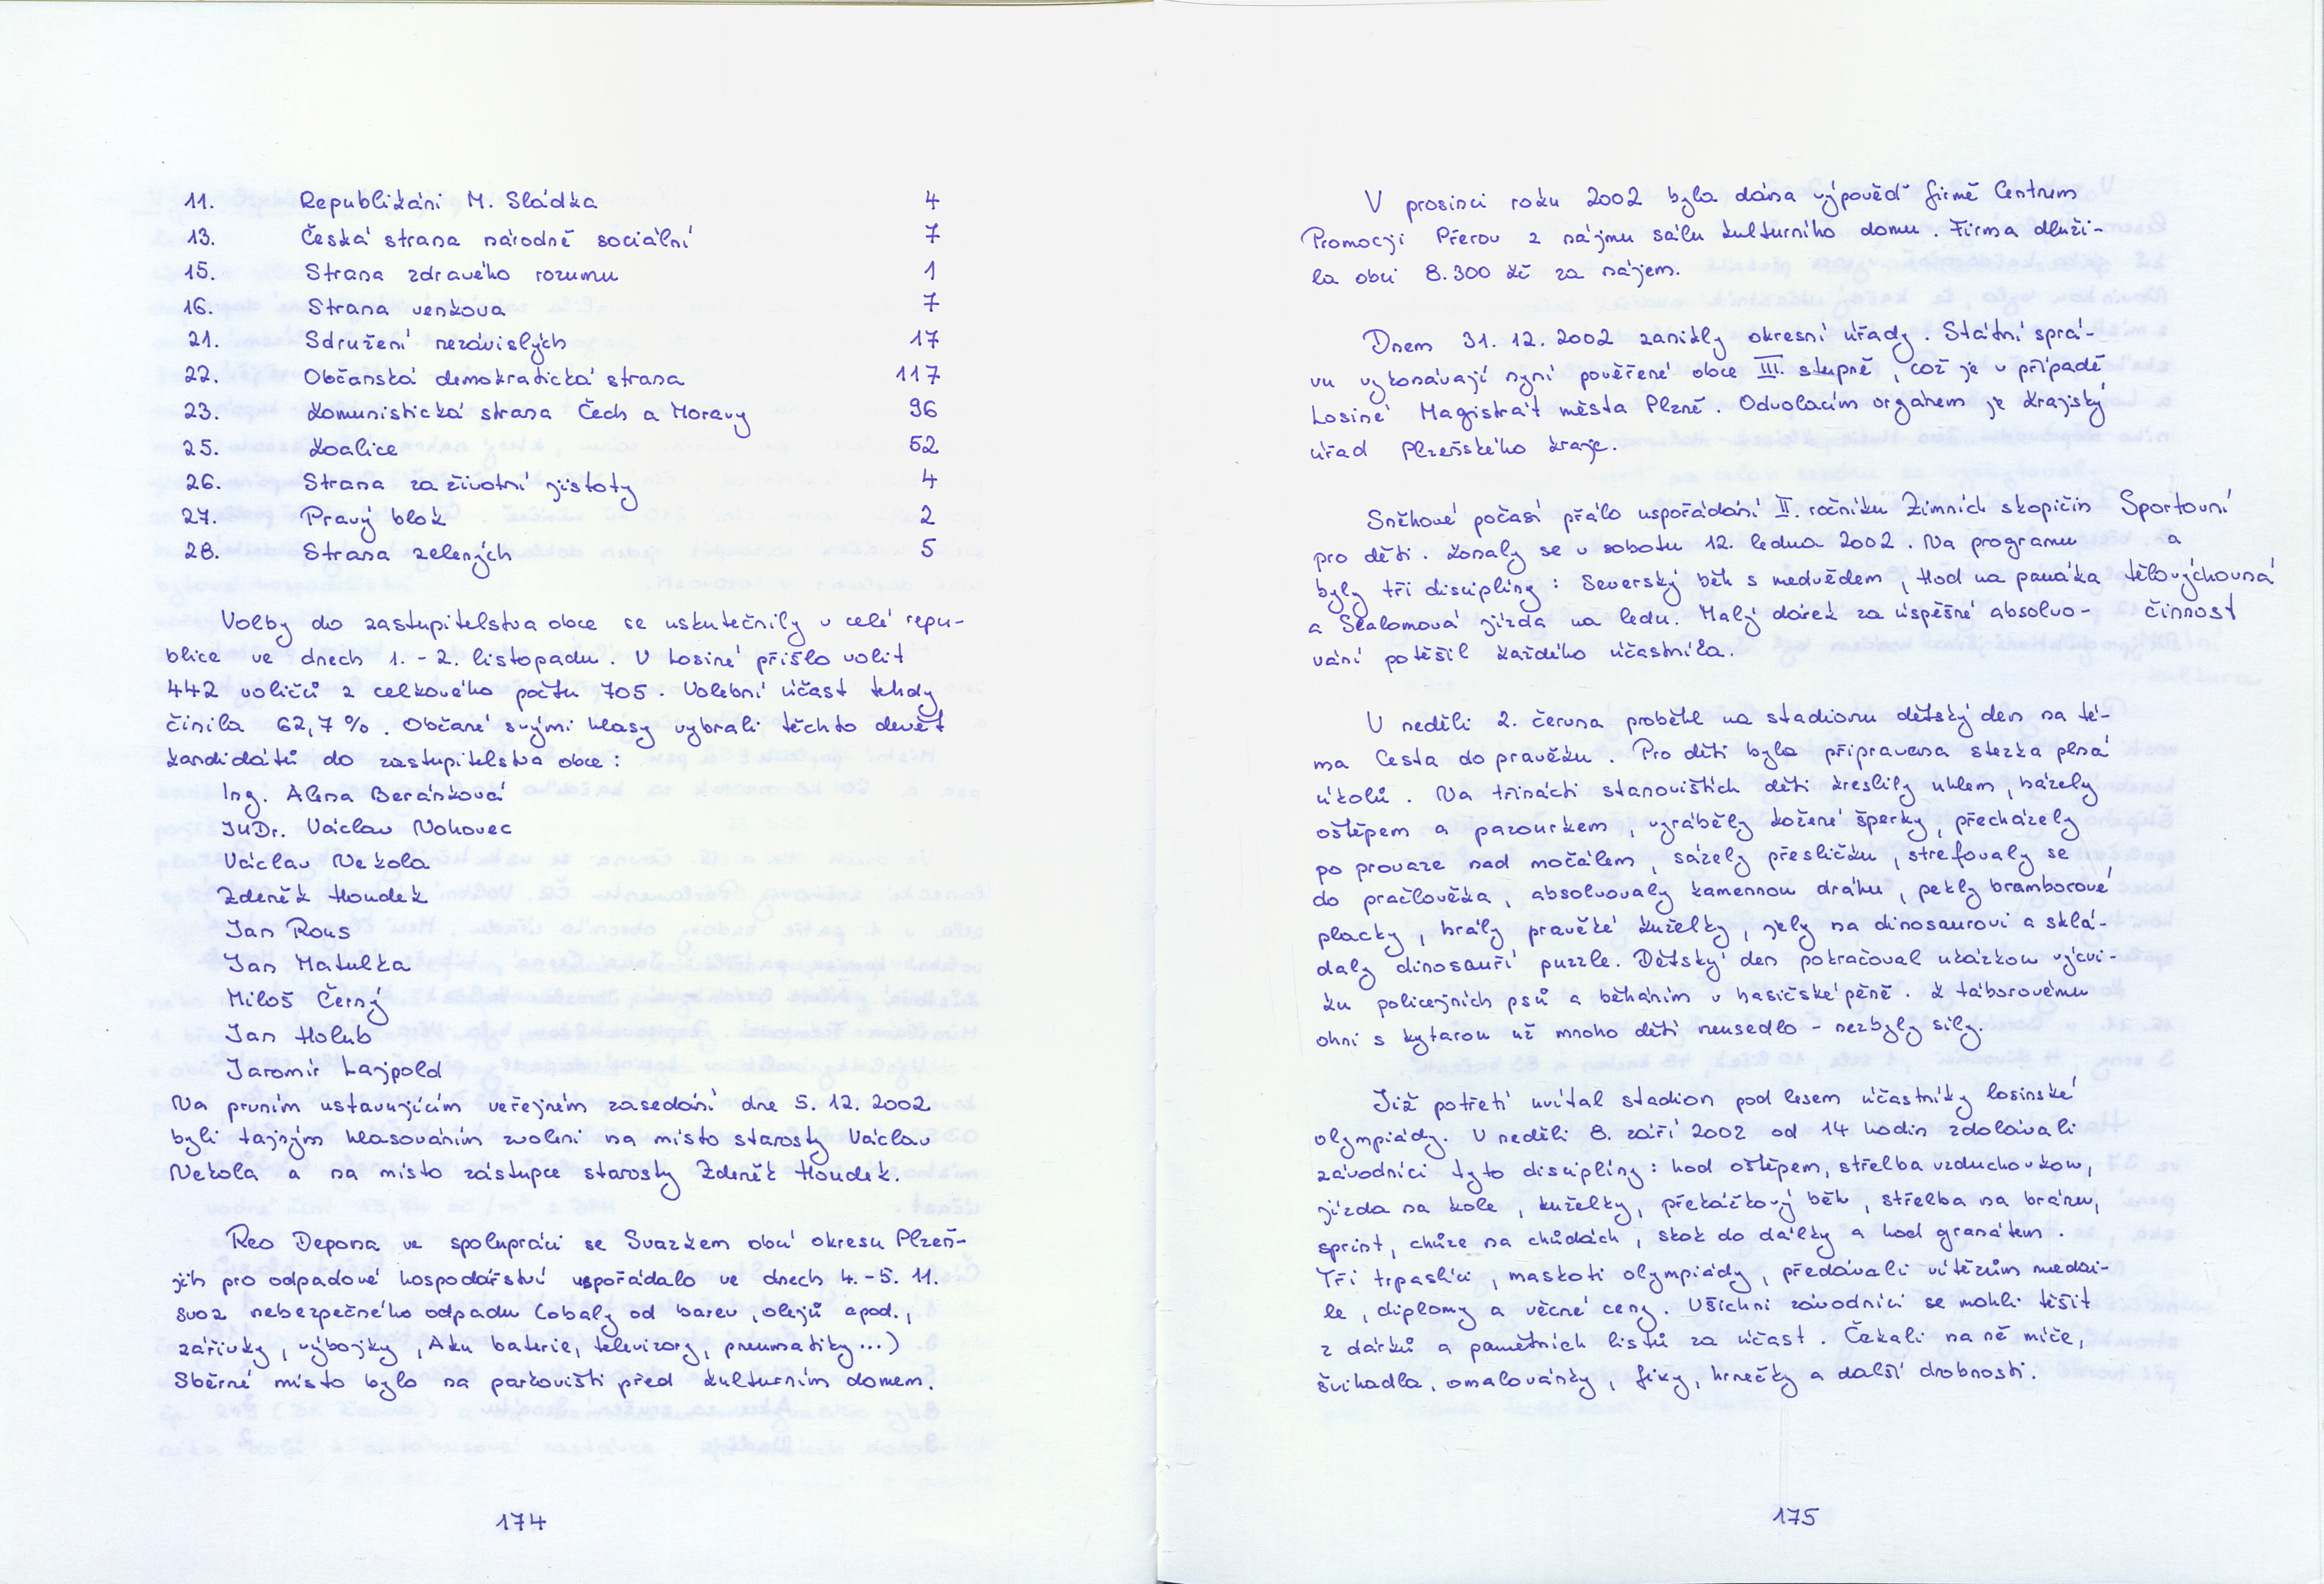 11. Republikáni M. Sládka 4
13. Česká strana národně sociální 7
15. Strana zdravého rozumu 1
16. Strana venkova 7
21. Sdružení nezávislých 17
22. Občanská demokratická strana 117
23. Komunistická strana Čech a Moravy 96
25. Koalice 52
26. Strana za životní jistoty 4
27. Pravý blok 2
28. Strana zelených 5
Volby do zastupitelstva obce se uskutečnily v celé repu-
blice ve dnech 1. - 2. listopadu. V Losiné přišlo volit
442 voličů z celkového počtu 705. Volební účast tehdy
činila 62,7 %. Občané svými hlasy vybrali těchto devět
kandidátů do zastupitelstva obce:
Ing. Alena Beránková
JuDr. Václav Nohovec
Václav Nekola
Zdeněk Houdek
Jan Rous
Jan Matulka
Miloš Černý
Jan Holub
Jaromír Lajpold
Na prvním ustavujícím veřejném zasedání dne 5. 12. 2002
byli tajným hlasováním zvoleni na místo starosty Václav
Nekola a na místo zástupce starosty Zdeněk Houdek.
Reo Depona ve spolupráci se Svazkem obcí okresu Plzeň-
jih pro odpadové hospodářství uspořádalo ve dnech 4. - 5. 11.
svoz nebezpečného odpadu (obaly od barev, olejů apod.,
zářivky, výbojky, Aku baterie, televizory, pneumatiky...)
Sběrné místo bylo na parkovišti před kulturním domem.
174
V prosinci roku 2002 byla dána výpověď firmě Centrum
Promocji Přerov z nájmu sálu kulturního domu. Firma dluži-
la obci 8.300 Kč za nájem.
Dnem 31. 12. 2002 zanikly okresní úřady. Státní sprá-
vu vykonávají nyní pověřené obce III. stupně, což je v případě
Losiné Magistrát města Plzně. Odvolacím orgánem je Krajský
úřad Plzeňského kraje.
Sněhové počasí přálo uspořádání II. ročníku Zimních skopičin
pro děti. Konaly se v sobotu 12. ledna 2002. Na programu
byly tři disciplíny: Severský běh s medvědem, Hod na panáka
a Slalomová jízda na ledu. Malý dárek za úspěšné absolvo-
vání potěšil každého účastníka.
Sportovní
a
tělovýchovná
činnost
V neděli 2. června proběhl na stadionu dětský den na té-
ma Cesta do pravěku. Pro děti byla připravena stezka plná
úkolů. Na třinácti stanovištích děti kreslily uhlem, házely
oštěpem a pazourkem, vyráběly kožené šperky, přecházely
po provaze nad močálem, sázely přesličku, strefovaly se
do pračlověka, absolvovaly kamennou dráhu, pekly bramborové
placky, hrály pravěké kuželky, jely na dinosaurovi a sklá-
daly dinosauří puzzle. Dětský den pokračoval ukázkou výcvi-
ku policejních psů a běháním v hasičské pěně. K táborovému
ohni s kytarou už mnoho dětí neusedlo - nezbyly síly.
Již potřetí uvítal stadion pod lesem účastníky losinské
olympiády. V neděli 8. září 2002 od 14 hodin zdolávali
závodníci tyto disciplíny: hod oštěpem, střelba vzduchovkou,
jízda na kole, kuželky, překážkový běh, střelba na bránu,
sprint, chůze na chůdách, skok do dálky a hod granátem.
Tři trpaslíci, maskoti olympiády, předávali vítězům medai-
le, diplomy a věcné ceny. Všichni závodníci se mohli těšit
z dárků a pamětních listů za účast. Čekali na ně míče,
švihadla, omalovánky, fixy, hrnečky a další drobnosti.
175